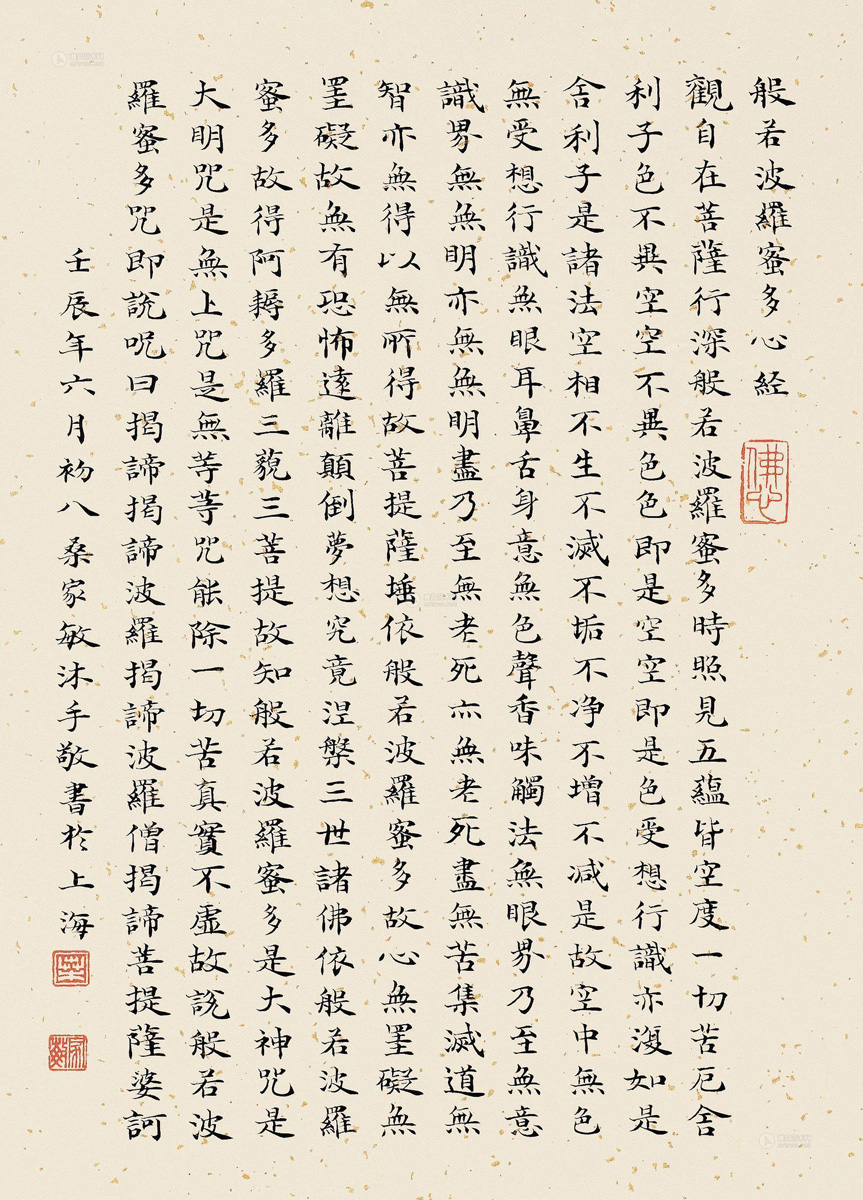 般若波羅蜜多心経
佛心
觀自在菩薩行深般若波羅蜜多時照見五蘊皆空度一切苦厄舍
利子色不異空空不異色色即是空空即是色受想行識亦復如是
舍利子是諸法空相不生不滅不垢不净不增不減是故空中無色
無受想行識無眼耳鼻舌身意無色聲香味觸法無眼界乃至無意
識界無無明亦無無明盡乃至無老死亦無老死盡無苦集滅道無
智亦無得以無所得故菩提薩埵依般若波羅蜜多故心無罣礙無
罣礙故無有恐怖遠離顛倒夢想究竟涅槃三世諸佛依般若波羅
蜜多故得阿耨多羅三藐三菩提故知般若波羅蜜多是大神咒是
大明咒是無上咒是無等等咒能除一切苦真實不虛故說般若波
羅蜜多咒即說呪曰揭諦揭諦波羅揭諦波羅僧揭諦菩提薩婆訶
壬辰年六月初八桑家敏沐手敬書於上海